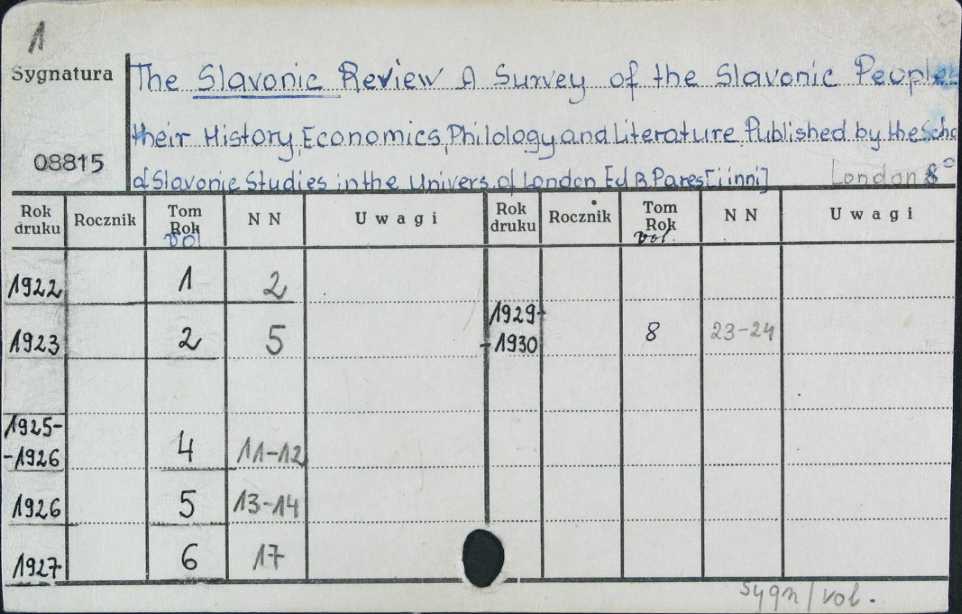 1
Sygnatura
08815
The Slavonic Review A Survey of the Slavonic Peoples
their History, Economics, Philology and Literature. Published by the Scho
of Slavonic Studies in the Univers. of London Ed B. Pares [i inni] London 8°
Rok druku Rocznik Tom Rok vol NN Uwagi Rok druku Rocznik Tom Rok vol. NN Uwagi
1922 1 2
1923 2 5 1929-
-1930 8 23-24
1925-
-1926 4 11-12
1926 5 13-14
1927 6 17
sygn/vol.